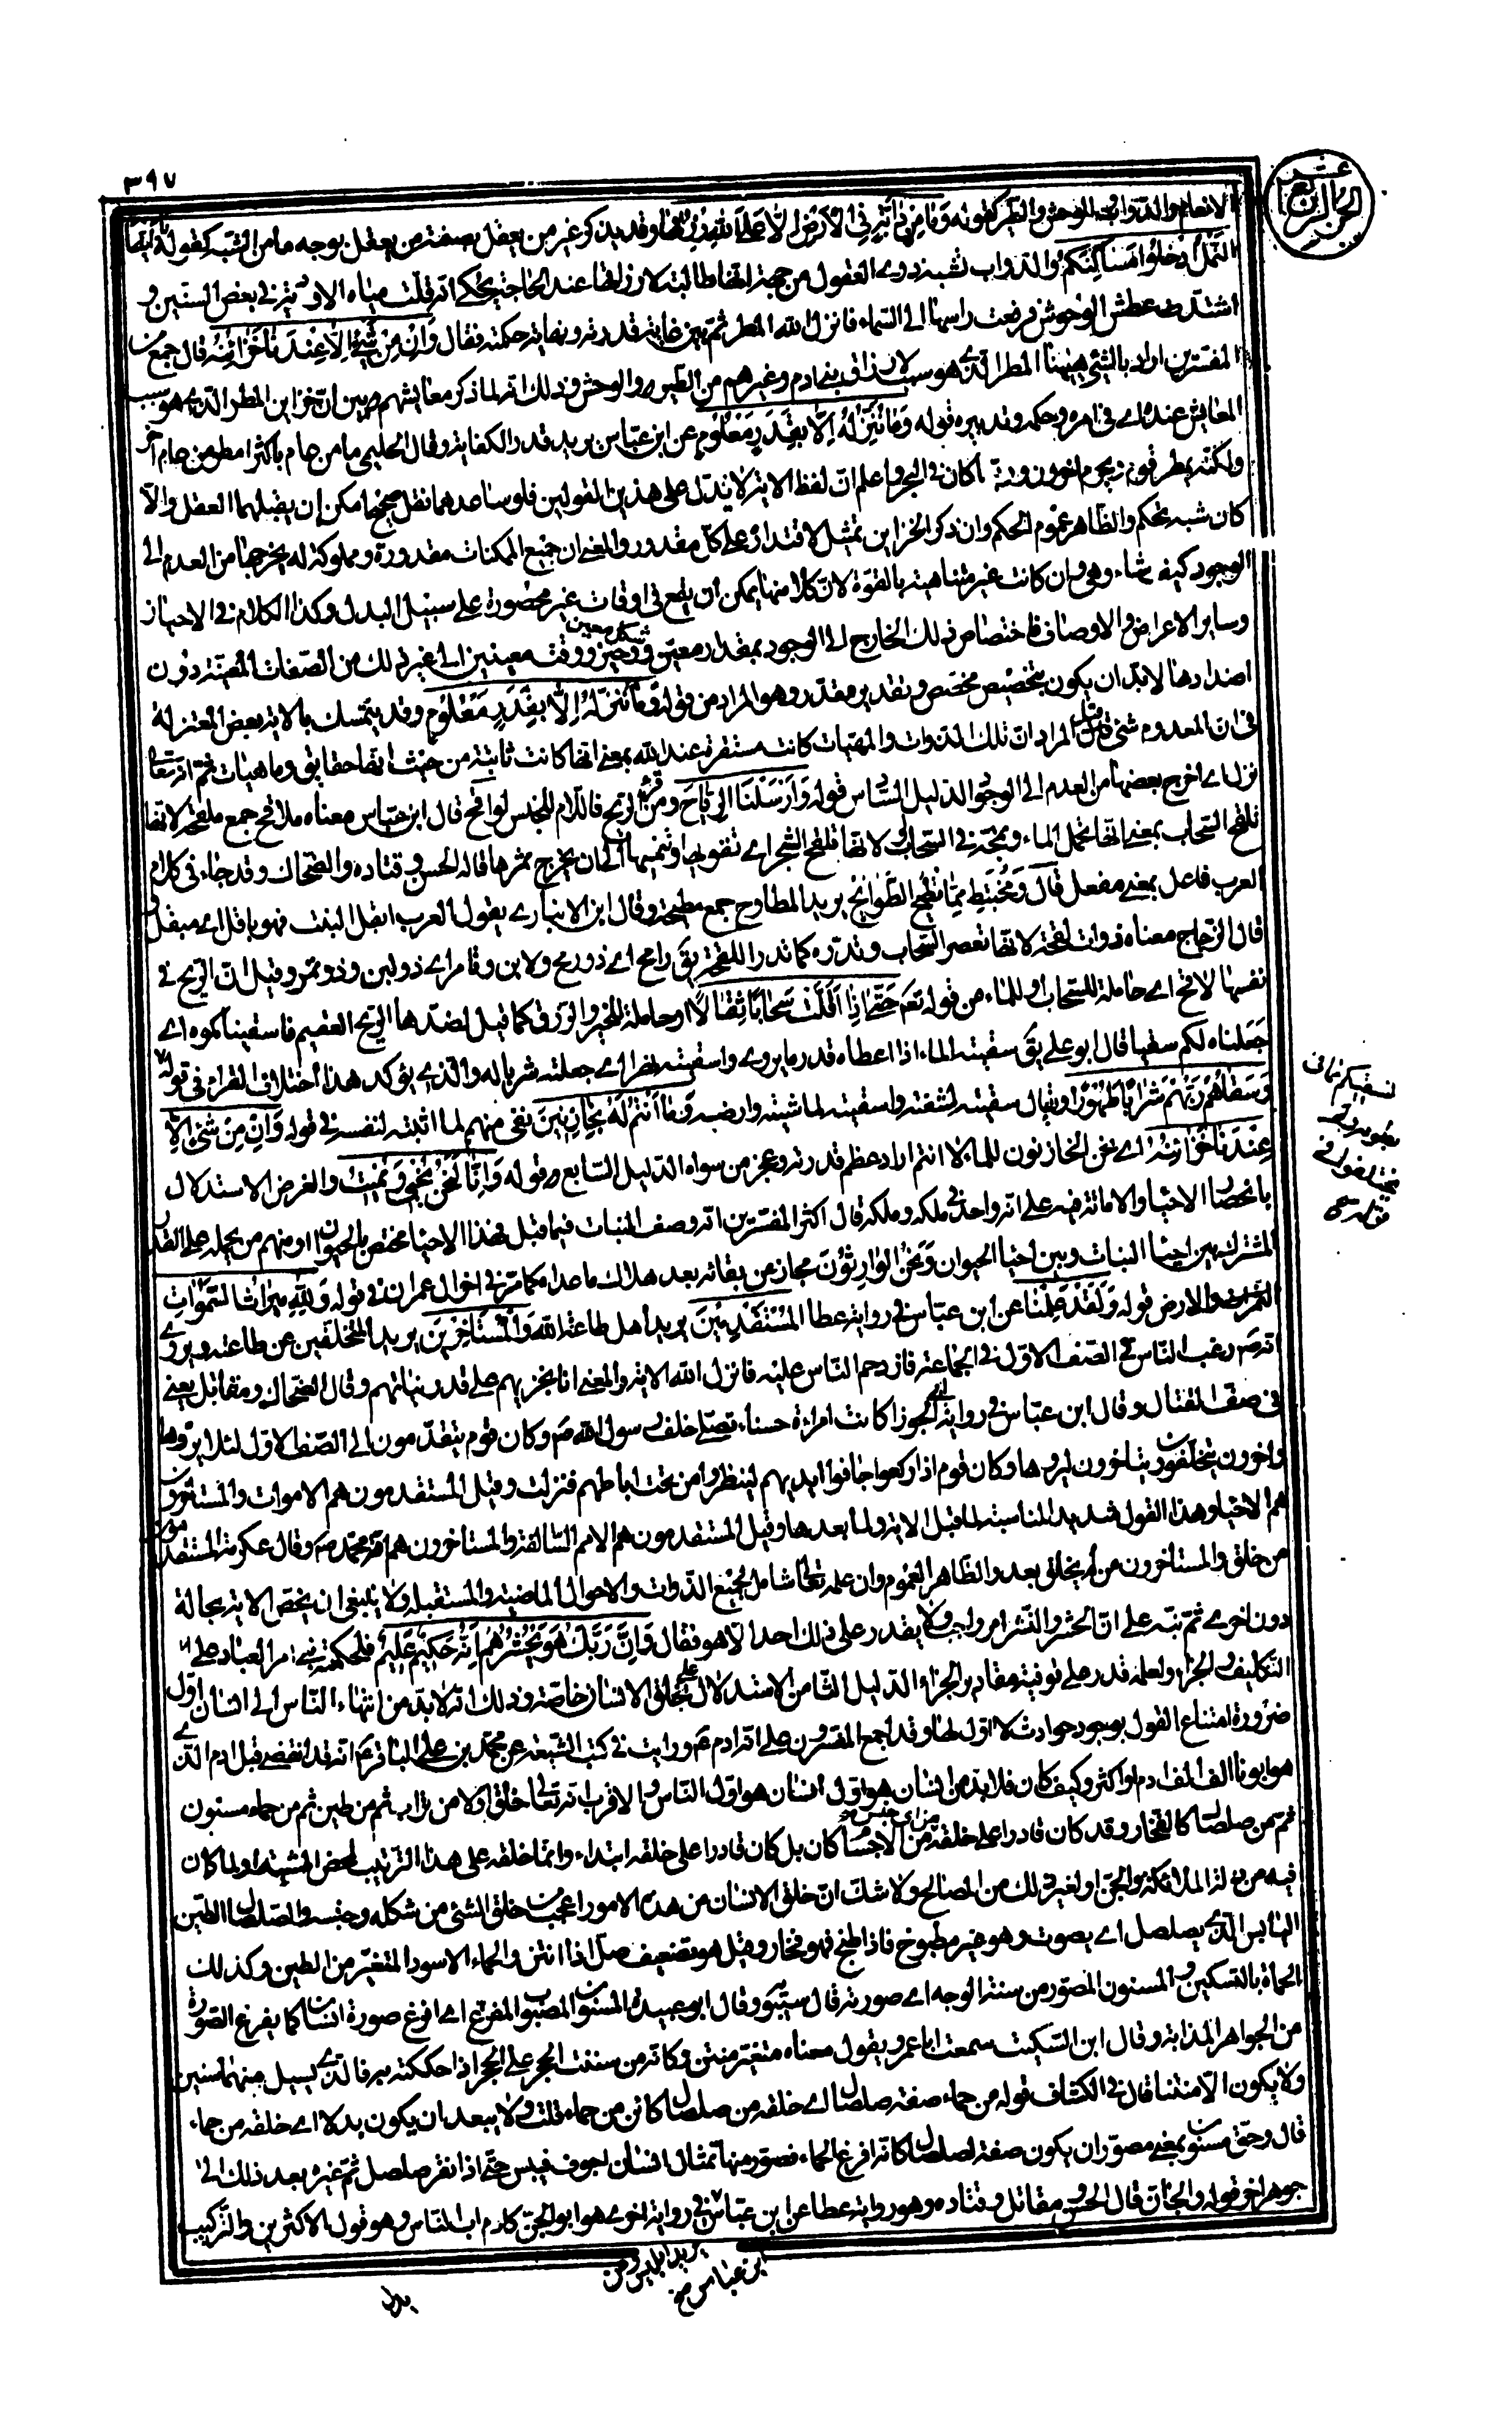 ٣٩٧
الجزء الرابع عشر
الانعام والدواب والوحش والطير كقوله وَمَا مِنْ دَابَّةٍ فِي الْأَرْضِ إِلَّا عَلَى اللّٰهِ رِزْقُهَا وقد يذكر غير من يعقل بصفة من يعقل بوجه ما من الشبه كقوله يَا أَيُّهَا
النَّمْلُ ادْخُلُوا مَسَاكِنَكُمْ والدواب تشبه ذوي العقول من جهة انها طالبة لارزاقها عند الحاجة يحكى انه قلت مياه الاودية في بعض السنين و
اشتد عطش الوحوش فرفعت راسها الى السماء فانزل الله المطر ثم بين غاية قدرته ونهاية حكمته فقال وَإِنْ مِنْ شَيْءٍ إِلَّا عِنْدَنَا خَزَائِنُهُ قال جمع من
المفسرين اراد بالشئ ههنا المطر الذي هو سبب لارزاق بني ادم وغيرهم من الطيور والوحش وذلك انه لما ذكر معايشهم بين ان خزاين المطر الذي هو سبب
المعايش عنده اي في امره وحكمه وتدبيره قوله وَمَا نُنَزِّلُهُ إِلَّا بِقَدَرٍ مَعْلُومٍ عن ابن عباس يريد قدر الكفاية وقال الحكيم ما من عام باكثر مطرا من عام اخر
ولكنه يمطر قوم ويحرم اخرون وربما كان في البحر واعلم ان لفظ الاية لا يدل على هذين القولين فلو ساعدهما نقل صحيح امكن ان يقبلهما العقل والا
كان شبه تحكم والظاهر عموم الحكم وان ذكر الخزاين تمثيل لاقتداره على كل مقدور والمعنى ان جميع الممكنات مقدورة ومملوكة له يخرجها من العدم الى
الوجود كيف شاء وهي وان كانت غير متناهية بالقوة لان كلا منها يمكن ان يقع في اوقات غير محصورة على سبيل البدل وكذا الكلام في الاحياز
وساير الاعراض والاوصاف فاختصاص ذلك الخارج الى الوجود بمقدار معين وشكل معين وحيز ووقت معينين الى غير ذلك من الصفات المعينة دون
اضدادها لا بد ان يكون بتخصيص مخصص وتقدير مقدر وهو المراد من قوله وَمَا نُنَزِّلُهُ إِلَّا بِقَدَرٍ مَعْلُومٍ وقد يتمسك بالاية بعض المعتزلة
في ان المعدوم شئ قال المراد ان تلك الذوات والماهيات كانت مستقرة عند الله بمعنى انها كانت ثابتة من حيث انها حقايق وماهيات ثم انه تعالى
نزل اي اخرج بعضها من العدم الى الوجود الدليل السادس قوله وَأَرْسَلْنَا الرِّيَاحَ ومن قرأ الريح فاللام للجنس لواقح قال ابن عباس معناه ملاقح جمع ملقحة لانها
تلقح السحاب بمعنى انها تحمل الماء وتمجه في السحاب ولانها تلقح الشجر اي تقويها وتنميها الى ان يخرج ثمرها قاله الحسن وقتادة والضحاك وقد جاء في كلام
العرب فاعل بمعنى مفعل قال وَمُخْتَبِطٌ مِمَّا تُطِيحُ الطَّوَائِحُ يريد المطاوح جمع مطيحة وقال ابن الانباري يقول العرب ابقل النبت فهو باقل اي مبقل و
قال الزجاج معناه ذوات لقحة لانها تعصر السحاب وتدره كما تدر اللقحة يق رامح اي ذو رمح ولابن وتامر اي ذو لبن وذو تمر وقيل ان الريح في
نفسها لاقح اي حاملة للسحاب او للماء من قوله تع حَتَّى إِذَا أَقَلَّتْ سَحَابًا ثِقَالًا او حاملة للخير والرزق كما قيل لضدها الريح العقيم فاسقيناكموه اي
جعلناه لكم سقيا قال ابو علي يق سقيته الماء اذا اعطاه قدر ما يروي واسقيته نهرا اي جعلته شربا له والذي يؤكد هذا اختلاف القراء في قوله
وَسَقَاهُمْ رَبُّهُمْ شَرَابًا طَهُورًا ويقال سقيته لشفته واسقيته لماشيته وارضه وَمَا أَنْتُمْ لَهُ بِخَازِنِينَ نفى منهم لما اثبته لنفسه في قوله وَإِنْ مِنْ شَيْءٍ إِلَّا
عِنْدَنَا خَزَائِنُهُ اي نحن الخازنون للماء لا انتم اراد عظم قدرته وعجز من سواه الدليل السابع قوله وَإِنَّا لَنَحْنُ نُحْيِي وَنُمِيتُ والغرض الاستدلال
بانحصار الاحياء والاماتة فيه على انه واحد في ملكه وملكه قال اكثر المفسرين انه وصف النبات فيما قبل فهذا الاحيا مختص بالحيوان ومنهم من يحمله على القدر
المشترك بين احيا النبات وبين احيا الحيوان وَنَحْنُ الْوَارِثُونَ مجاز عن بقائه بعد هلاك ما عداه كما مر في اخر ال عمران في قوله وَلِلّٰهِ مِيرَاثُ السَّمٰوَاتِ
والارض قوله وَلَقَدْ عَلِمْنَا عن ابن عباس في رواية عطا الْمُسْتَقْدِمِينَ يريد اهل طاعة الله وَالْمُسْتَأْخِرِينَ يريد المتخلفين عن طاعته ويروى
انه ص رغب الناس في الصف الاول في الجماعة فازدحم الناس عليه فانزل الله الاية والمعنى انا نجزيهم على قدر نياتهم وقال الضحاك ومقاتل يعني
في صف القتال وقال ابن عباس في رواية ابي الجوزا كانت امراة حسناء تصلي خلف رسول الله ص وكان قوم يتقدمون الى الصف الاول لئلا يروها
واخرون يتخلفون ويتاخرون ليروها وكان قوم اذا ركعوا جافوا ايديهم لينظروا من تحت اباطهم فنزلت وقيل المستقدمون هم الاموات والمستاخرون
هم الاحياء وهذا القول شديد المناسبة لما قبل الاية ولما بعدها وقيل المستقدمون هم الامم السالفة والمستاخرون هم امة محمد ص وقال عكرمة المستقدمون
من خلق والمستاخرون من لم يخلق بعد والظاهر العموم وان علمه تعالى شامل لجميع الذوات والاحوال الماضية والمستقبلة ولا ينبغي ان يخص الاية بحالة
دون اخرى ثم نبه على ان الحشر والنشر امر واجب ولا يقدر على ذلك احد الا هو فقال وَإِنَّ رَبَّكَ هُوَ يَحْشُرُهُمْ إِنَّهُ حَكِيمٌ عَلِيمٌ فلحكمته بنى امر العباد على
التكليف والجزاء ولعلمه قدر على توفية مقادير الجزاء الدليل الثامن الاستدلال على خلق الانسان خاصة وذلك انه لا بد من انتهاء الناس الى انسان اول
ضرورة امتناع القول بوجود حوادث لا اول لها وقد اجمع المفسرون على انه ادم ع ورايت في كتب الشيعة عن محمد بن علي الباقر ع انه قد انقضى قبل ادم الذي
هو ابونا الف الف ادم او اكثر وكيف كان فلا بد من انسان هو اول انسان هو اول الناس والاقرب انه تعالى خلق اولا من تراب ثم من طين ثم من حماء مسنون
ثم من صلصال كالفخار وقد كان قادرا على خلقه من اي جنس من الاجسام كان بل كان قادرا على خلقه ابتداء وانما خلقه على هذا الترتيب لمحض المشية او لما كان
فيه من دلالة الملائكة والجن او لغير ذلك من المصالح ولا شك ان خلق الانسان من هذه الامور اعجب من خلق الشئ من شكله وجنسه والصلصال الطين
اليابس الذي يصلصل اي يصوت وهو غير مطبوخ فاذا طبخ فهو فخار وقيل هو تضعيف صل اذا انتن والحماء الاسود المتغير من الطين وكذلك
الحماة بالتسكين والمسنون المصور من سنة الوجه اي صورته قال سيبويه وقال ابو عبيدة المسنون المصبوب المفرغ اي افرغ صورة انسان كما يفرغ الصورة
من الجواهر المذابة وقال ابن السكيت سمعت ابا عمرو يقول معناه متغير منتن وكانه من سننت الحجر على الحجر اذا حككته به فالذي يسيل منهما سنين
ولا يكون الا منتنا قال في الكشاف قوله من حماء صفة صلصال اي خلقه من صلصال كائن من حماء قلت ولا يبعد ان يكون بدلا اي خلقه من حماء
قال وحق مسنون بمعنى مصور ان يكون صفة لصلصال كانه افرغ الحماء فصور منها تمثال انسان اجوف فيبس حتى اذا نقر صلصل ثم غيره بعد ذلك الى
جوهر اخر قوله والجان قال الحسن ومقاتل وقتادة وهو رواية عطا عن ابن عباس في رواية اخرى هو ابو الجن كادم اب الناس وهو قول الاكثرين والتركيب
يريد ابليس وعن
ابن عباس